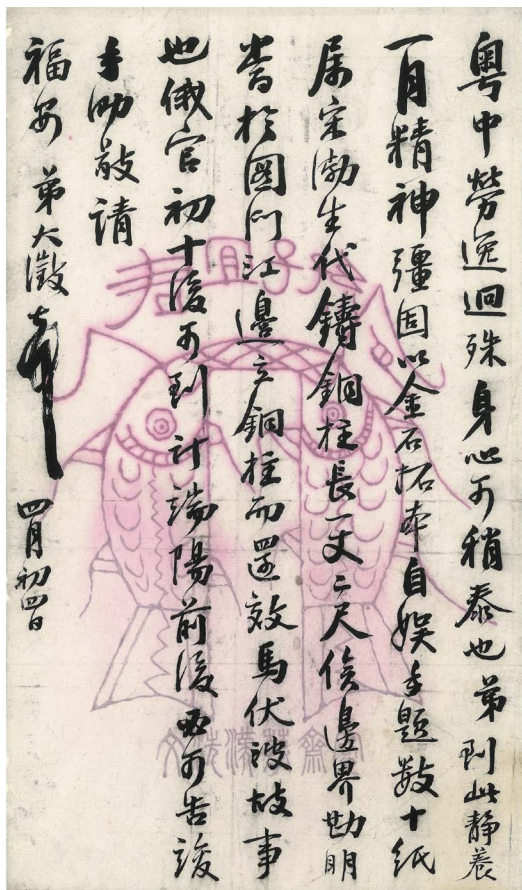 粤中勞逸迥殊身心可稍泰也弟到此靜養
一月精神彊固以金石拓本自娱手題數十紙
屬宋渤生代鑄銅柱長一丈二尺俟邊界勘明
當於圖们江邊立銅柱而還效馬伏波故事
也俄官初十後可到計端陽前後必可告竣
手泐敬請
福安 弟大澂頓首
四月初四日